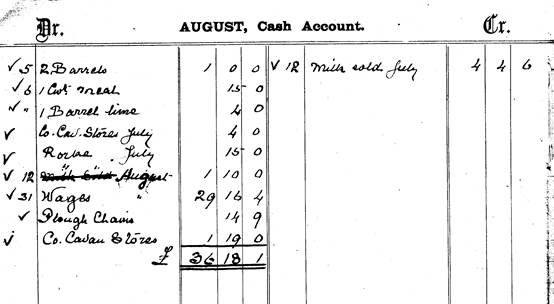 Dr. AUGUST, Cash Account. Cr.
✓ 5 2 Barrels 1 0 0 ✓ 12 Milk sold July 4 4 6
✓ 6 1 Cwt meal 15 0
✓ " 1 Barrel lime 4 0
✓ Co. Cav. Stores July 4 0
✓ Rorke July 15 0
✓ 12 " " August 1 10 0
✓ 31 Wages " 29 16 4
✓ Plough Chains 14 9
✓ Co. Cavan Stores 1 19 0
£ 36 18 1